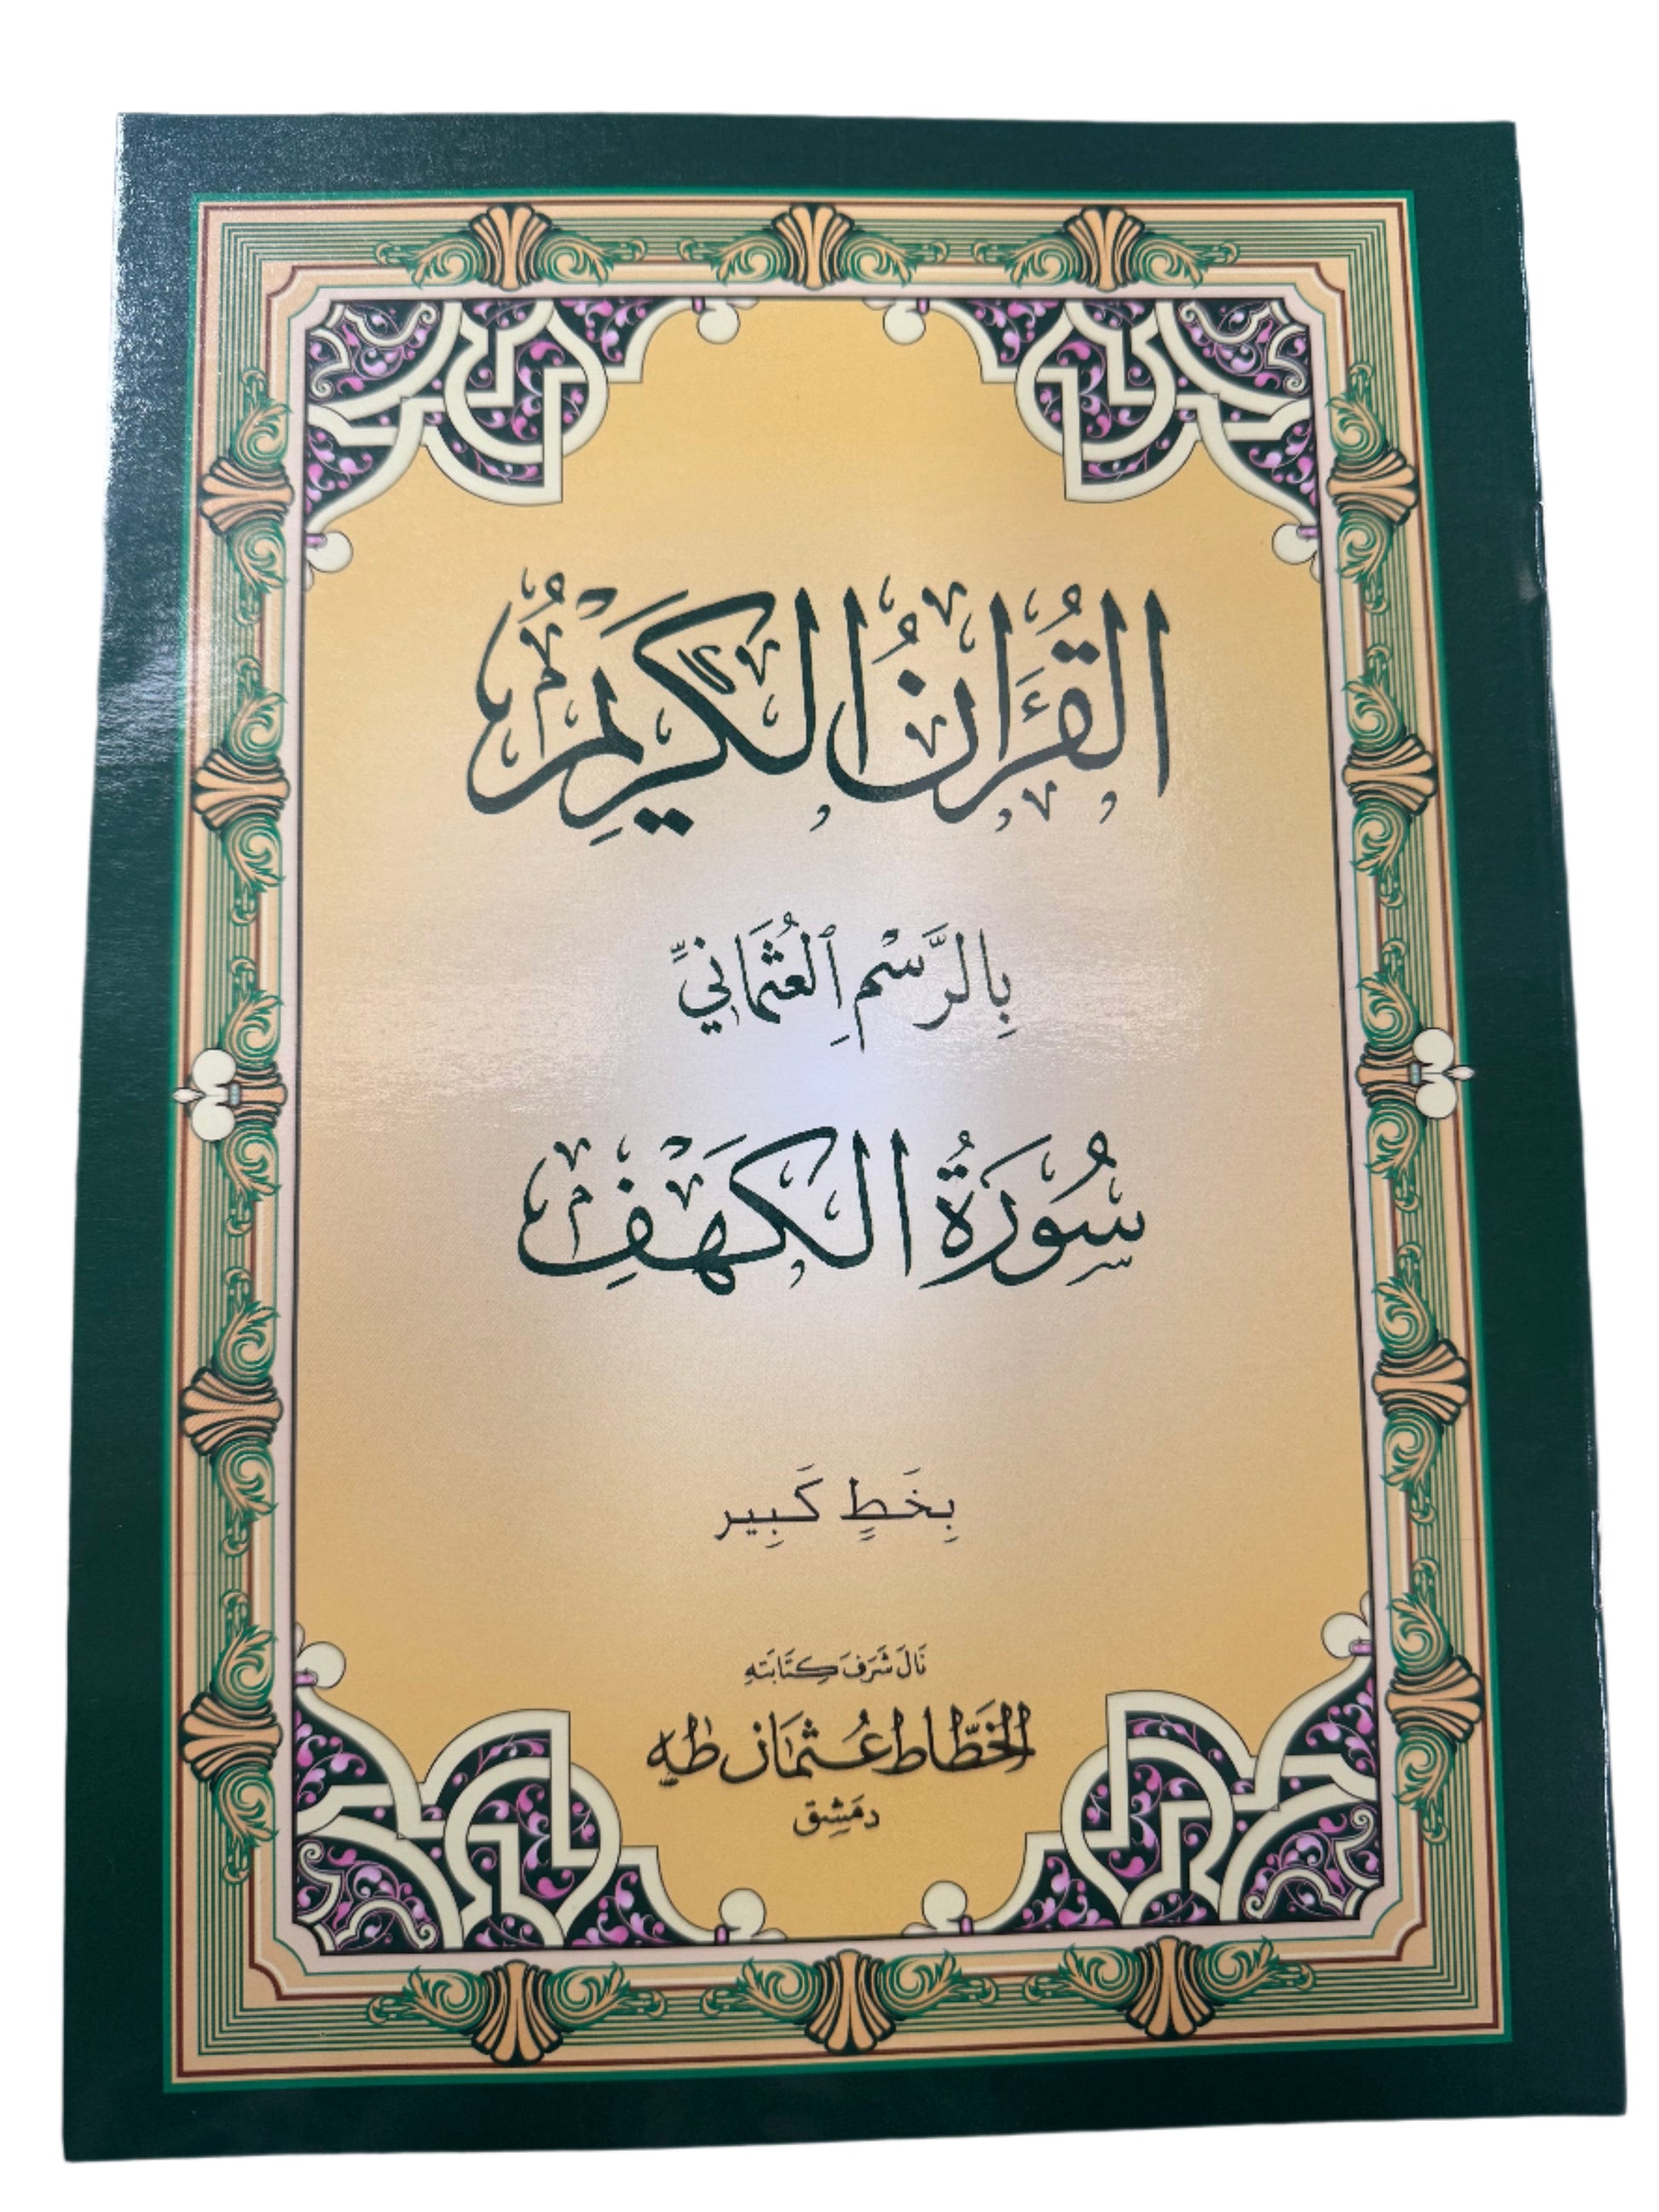 القُرْءَانُ الكَرِيمُ
بِالرَّسْمِ ٱلعُثْمَانِيِّ
سُورَةُ الكَهْفِ
بِخَطٍ كَبِير
نَالَ شَرَفَ كِتَابَتِهِ
الخَطَّاط عُثْمَان طٰهٰ
دِمَشِق